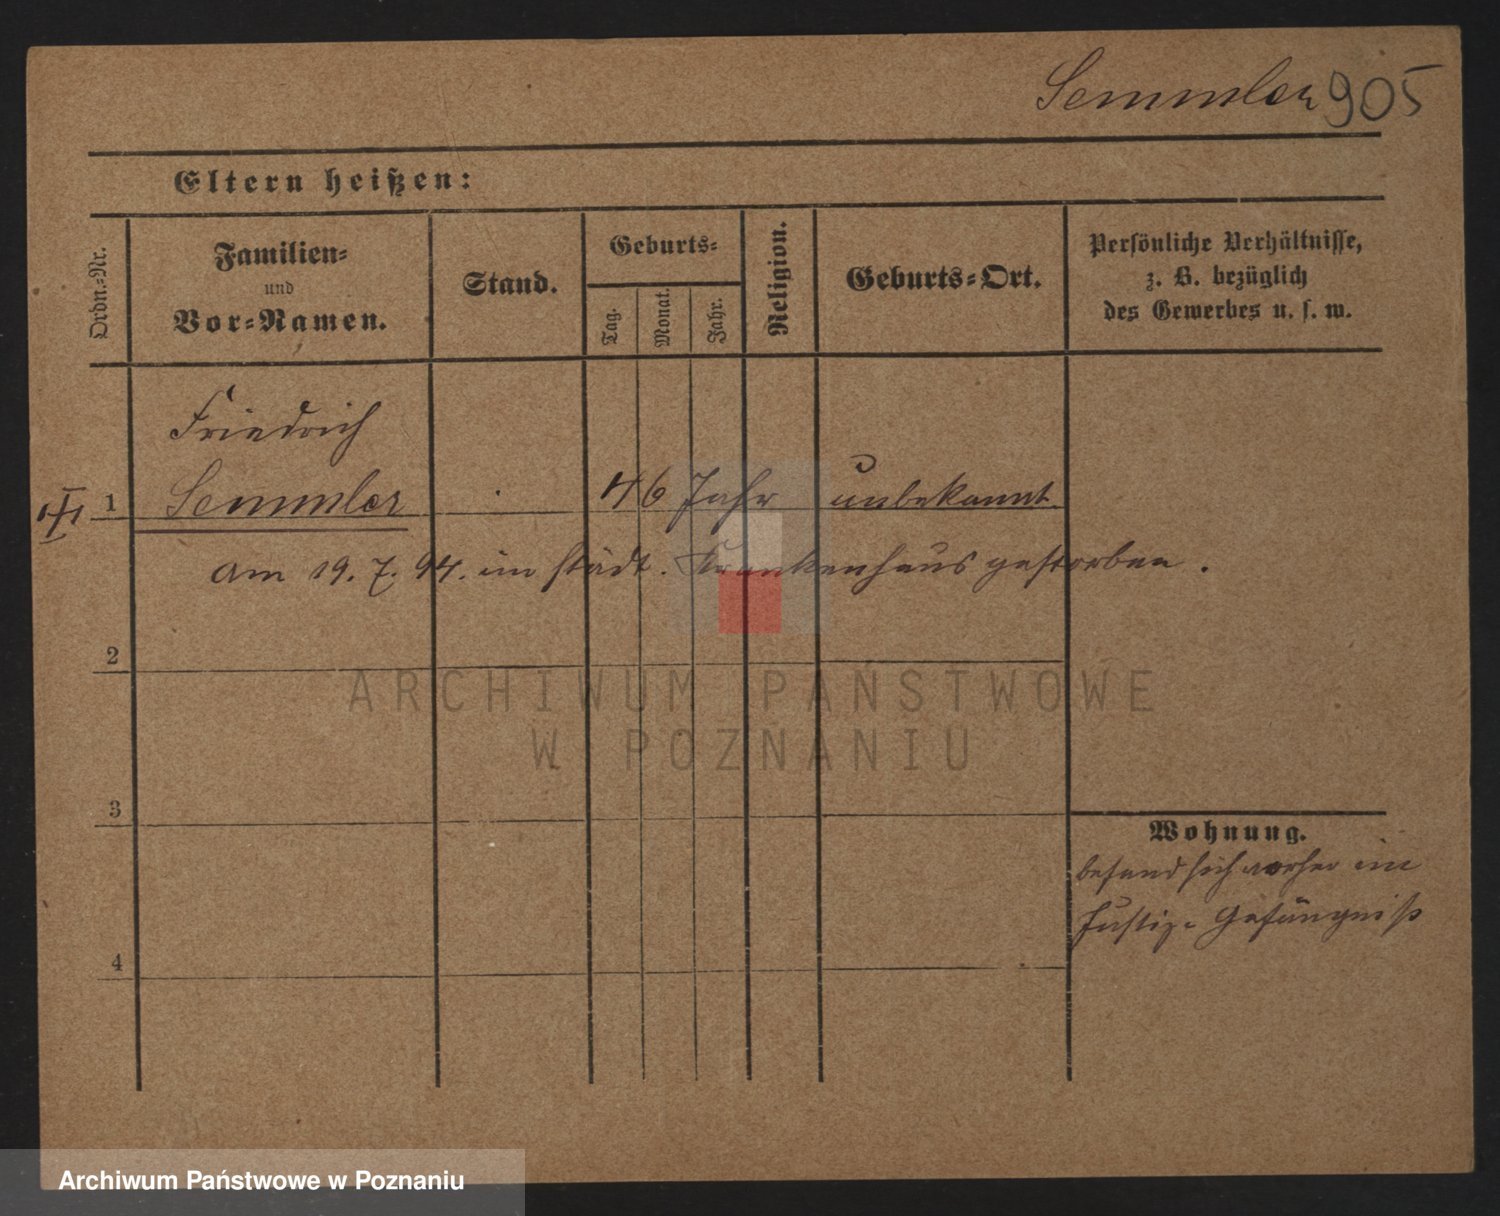 Semmler 905
Eltern heißen:
Ordn.-Nr.
Familien-
und
Vor-Namen.
Stand.
Geburts-
Tag.
Monat.
Jahr.
Religion.
Geburts-Ort.
Persönliche Verhältnisse,
z. B. bezüglich
des Gewerbes u. s. w.
Friedrich
1 Semmler 46 Jahr unbekannt
am 19. 7. 94. im städt. Krankenhaus gestorben.
2
ARCHIWUM PAŃSTWOWE
W POZNANIU
3
Wohnung.
befand sich vorher im
Justiz-Gefängniß
4
Archiwum Państwowe w Poznaniu